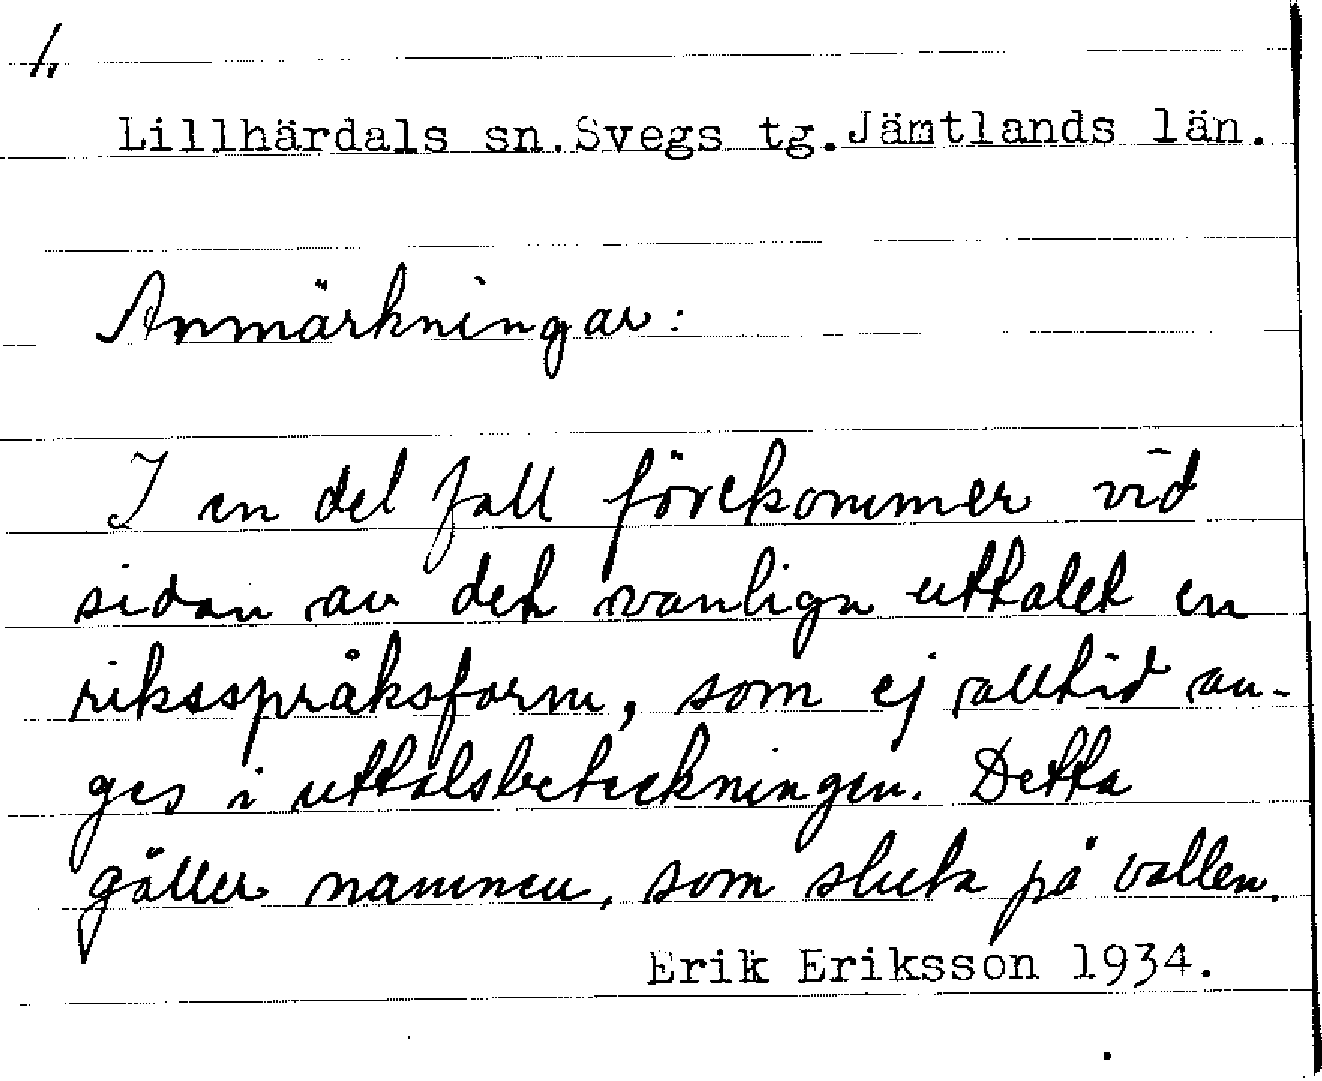 1.
Lillhärdals sn. Svegs tg. Jämtlands län.
Anmärkningar:
I en del fall förekommer vid
sidan av det vanliga uttalet en
riksspråksform, som ej alltid an-
ges i uttalsbeteckningen. Detta
gäller namnen, som sluta på vallen.
Erik Eriksson 1934.